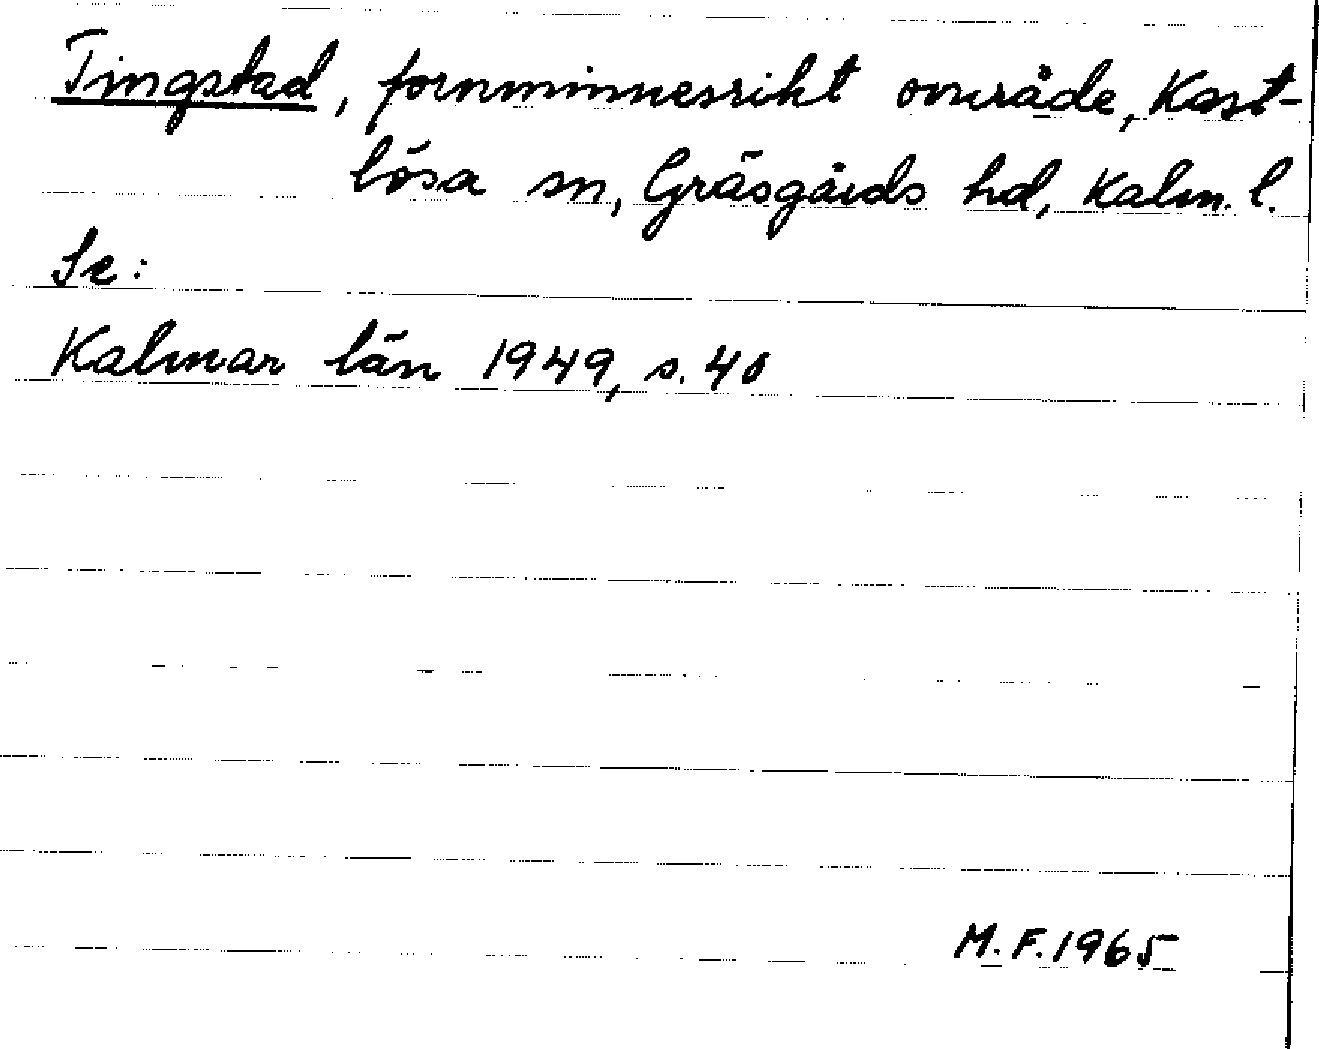 Tingstad, fornminnesrikt område, Kast-
lösa sn, Gräsgårds hd, Kalm. l.
Se:
Kalmar län 1949, s. 40
M.F. 1965